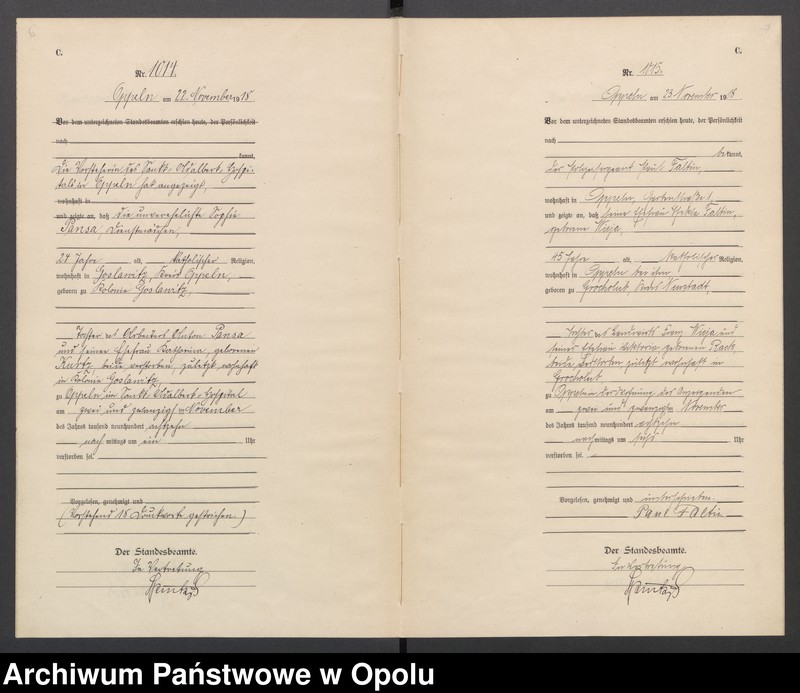 C.
Nr. 1014.
Oppeln am 22. November 1918
Vor dem unterzeichneten Standesbeamten erschien heute, der Persönlichkeit
nach
kannt,
Die Vorsteherin des Sankt Adalbert Hospi-
tals in Oppeln hat angezeigt,
wohnhaft in
und zeigte an, daß die unverehelichte Sophie
Pansa, Dienstmädchen,
24 Jahre alt, katholischer Religion,
wohnhaft in Goslawitz, Kreis Oppeln,
geboren zu Kolonie Goslawitz,
Tochter des Arbeiters Anton Pansa
und seiner Ehefrau Katharina, geborenen
Kurtz beide verstorben, zuletzt wohnhaft
in Kolonie Goslawitz
zu Oppeln im Sankt Adalbert Hospital
am zwei und zwanzigsten November
des Jahres tausend neunhundert achtzehn
nach mittags um ein Uhr
verstorben sei.
Vorgelesen, genehmigt und
(Vorstehend 18 Druckworte gestrichen)
Der Standesbeamte.
In Vertretung
C.
Nr. 1015.
Oppeln am 23 November 1918
Vor dem unterzeichneten Standesbeamten erschien heute, der Persönlichkeit
nach
bekannt,
der Polizeisergeant Paul Faltin,
wohnhaft in Oppeln, Gartenstraße 1,
und zeigte an, daß seine Ehefrau Faltin,
geborene Wieja,
45 Jahre alt, katholischer Religion,
wohnhaft in Oppeln bei ihm,
geboren zu Grocholub, Kreis Neustadt,
Tochter des Landwirts Franz Wieja und
seiner Ehefrau Viktoria geborenen Rack,
beide verstorben zuletzt wohnhaft in
Grocholub
zu Oppeln in der Wohnung des Anzeigenden
am zwei und zwanzigsten November
des Jahres tausend neunhundert achtzehn
nach mittags um sechs Uhr
verstorben sei.
Vorgelesen, genehmigt und unterschrieben
Paul Faltin
Der Standesbeamte.
In Vertretung
Archiwum Państwowe w Opolu